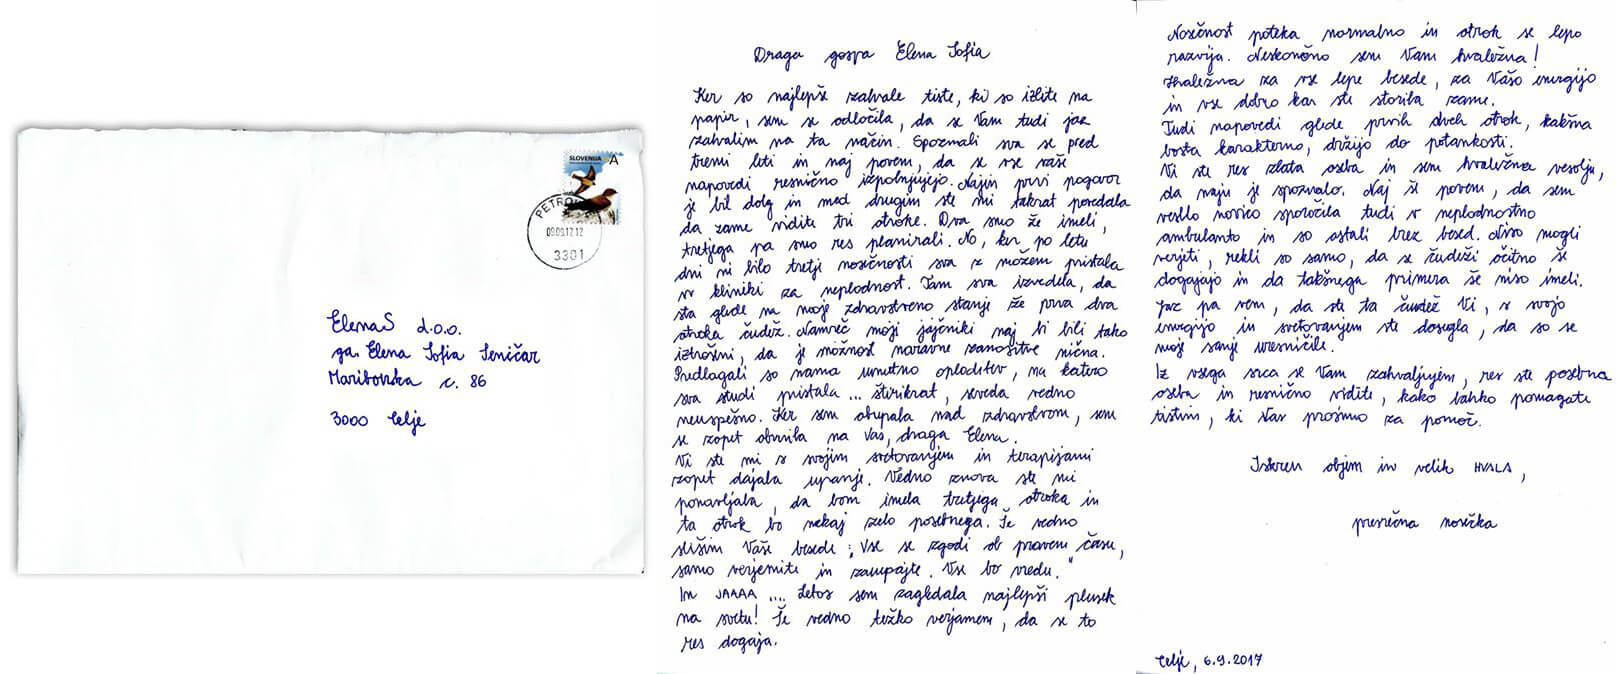 SLOVENIJA A
PETRO
09.09.17.12
3301
ElenaS d.o.o.
ga. Elena Sofia Seničar
Mariborska c. 86
3000 Celje
Draga gospa Elena Sofia
Ker so najlepše zahvale tiste, ki so izlite na
papir, sem se odločila, da se Vam tudi jaz
zahvalim na ta način. Spoznali sva se pred
tremi leti in naj povem, da se vse vaše
napovedi resnično izpolnjujejo. Najin prvi pogovor
je bil dolg in med drugim ste mi takrat povedala
da zame vidite tri otroke. Dva smo že imeli,
tretjega pa smo res planirali. No, ker po letu
dni ni bilo tretje nosečnosti sva z možem pristala
v kliniki za neplodnost. Tam sva izvedela, da
sta glede na moje zdravstveno stanje že prva dva
otroka čudež. Namreč moji jajčniki naj bi bili tako
iztrošeni, da je možnost naravne zanositve nična.
Predlagali so nama umetno oploditev, na katero
sva studi pristala ... štirikrat, seveda vedno
neuspešno. Ker sem obupala nad zdravstvom, sem
se zopet obrnila na Vas, draga Elena.
Vi ste mi s svojim svetovanjem in terapijami
zopet dajala upanje. Vedno znova ste mi
ponavljala, da bom imela tretjega otroka in
ta otrok bo nekaj zelo posebnega. Še vedno
slišim Vaše besede: "Vse se zgodi ob pravem času,
samo verjemite in zaupajte. Vse bo vredu."
In JAAAA .... Letos sem zagledala najlepši plusek
na svetu! Še vedno težko verjamem, da se to
res dogaja.
Nosečnost poteka normalno in otrok se lepo
razvija. Neskončno sem Vam hvaležna!
Hvaležna za vse lepe besede, za Vašo energijo
in vse dobro kar ste storila zame.
Tudi napovedi glede prvih dveh otrok, kakšna
bosta karakterno, držijo do potankosti.
Vi ste res zlata oseba in sem hvaležna vesolju,
da naju je spoznalo. Naj še povem, da sem
veselo novico sporočila tudi v neplodnostno
ambulanto in so ostali brez besed. Niso mogli
verjeti, rekli so samo, da se čudeži očitno še
dogajajo in da takšnega primera še niso imeli.
Jaz pa vem, da ste ta čudež Vi, s svojo
energijo in svetovanjem ste dosegla, da so se
moje sanje uresničile.
Iz vsega srca se Vam zahvaljujem, res ste posebna
oseba in resnično vidite, kako lahko pomagate
tistim, ki Vas prosimo za pomoč.
Iskren objem in velik HVALA,
presrečna nosečka
Celje, 6.9.2017